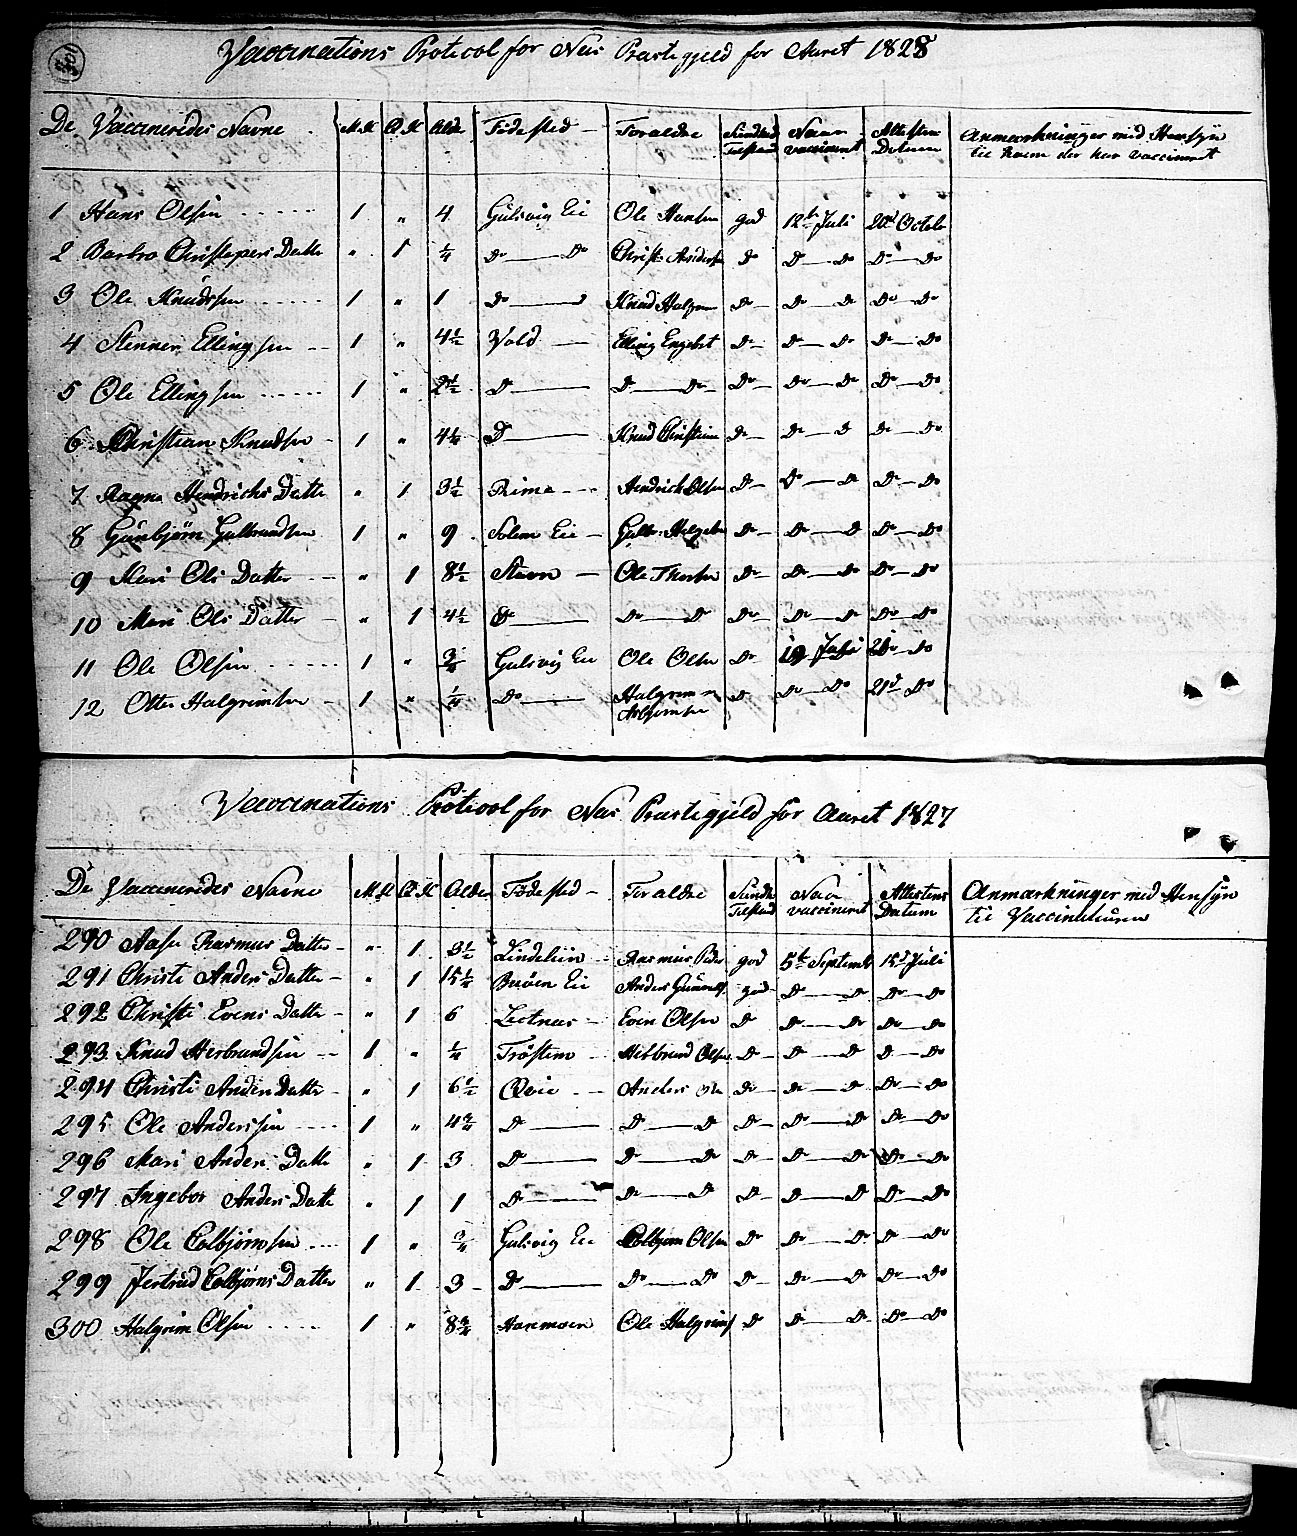 Vaccinations Protocol for Næs Præstegjeld for Aaret 1828
De Vaccineredes Navne M.K Q.K Alder Födested Forældre Sundheds Tilstand Naar vaccineret Attestens Datum Anmærkninger med Hensyn til hvem der har vaccineret
1 Hans Olsen 1 " 4 Gulsvig Eie Ole Hansen god 12te Juli 20d Octob
2 Barbro Christophers Datter " 1 1/4 do do Christ. Anders do do do do do
3 Ole Knudsen 1 " 1 do Knud Halgrim do do do do do
4 Stenner Ellingsen 1 " 4 1/2 Vold Elling Engebret do do do do do
5 Ole Ellingsen 1 " 2 1/2 do do do do do do do do
6 Christian Knudsen 1 " 4 1/2 do Knud Christian do do do do do
7 Ragne Hendrichs Datter " 1 3 1/2 Rime Hendrich Olsen do do do do do
8 Gunbjörn Gulbrandsen 1 " 9 Solem Eie Gulbr. Helges do do do do do
9 Kari Ols Datter " 1 8 1/2 Stavn Ole Thorsen do do do do do
10 Mari Ols Datter " 1 4 1/2 do do do do do do do do
11 Ole Olsen 1 " 3/4 Gulsvig Eie Ole Olsen do 19 Juli 21 do
12 Otter Halgrimsen 1 " 1/4 do Halgrim do do do 21d do
Vaccinations Protocol for Næs Præstegjeld for Aaret 1827
De Vaccineredes Navne M.K Q.K Alder Födested Forældre Sundh. Tilstand Naar vaccineret Attestens Datum Anmærkninger med Hensyn til Vaccinateuren
290 Aase Rasmus Datter " 1 3 1/2 Lindelien Rasmus Peders god 5te Septembr 15d Juli
291 Christi Anders Datter " 1 15 1/4 Bröen Eie Anders god do do do do
292 Christi Evens Datter " 1 6 Even Olsen do do do do do
293 Knud Herbrandsen 1 " 1/4 Tröstem Herbrand Olsen do do do do do
294 Christi Anders Datter " 1 6 1/2 Qvie Anders Ole do do do do do
295 Ole Anderssen 1 " 4 3/4 do do do do do do do do
296 Mari Anders Datter " 1 3 do do do do do do do do
297 Ingebor Anders Datter " 1 1 do do do do do do do do
298 Ole Colbjörnsen 1 " 3/4 Gulsvig Eie Colbjörn Olsen do do do do do
299 Jertrud Colbjörns Datter " 1 3 do do do do do do do do
300 Halgrim Olsen 1 " 8 3/4 Hanmoen Ole Halgrims do do do do do